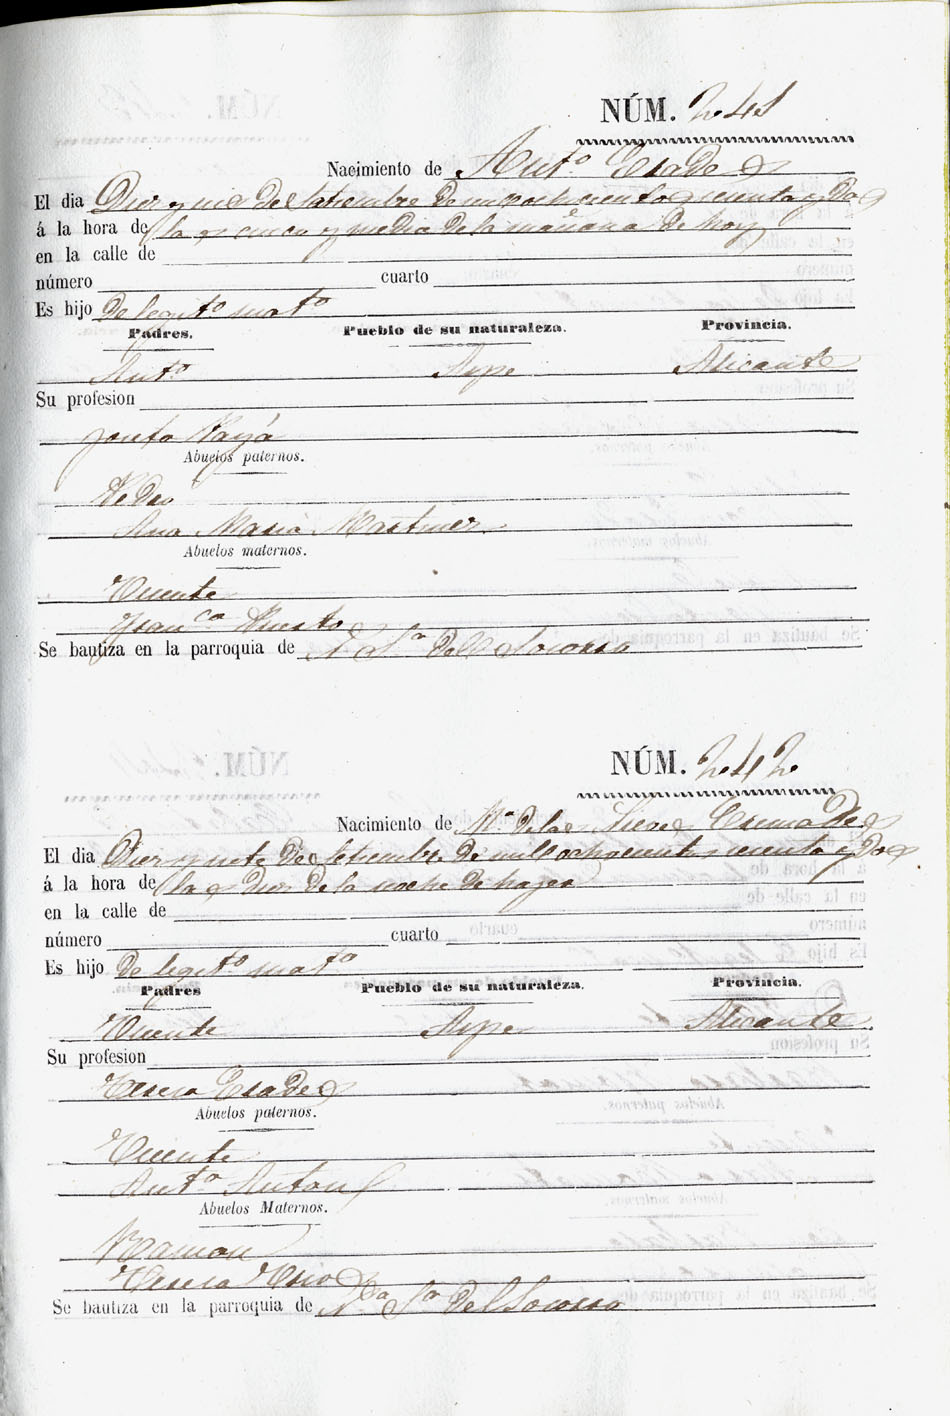 NÚM. 241
Nacimiento de Antº Prades
El dia Diez y nueve de Setiembre de mil ochocientos sesenta y dos
á la hora de las cinco y media de la mañana de hoy
en la calle de
número cuarto
Es hijo de legitº matº
Padres. Pueblo de su naturaleza. Provincia.
Antº Aspe Alicante
Su profesion
Josefa Payá
Abuelos paternos.
Pedro
Ana Maria Martinez
Abuelos maternos.
Vicente
Francª Puerto
Se bautiza en la parroquia de N. Sª del Socorro
NÚM. 242
Nacimiento de Mª de las Nieves Cremades
El dia Diez y siete de Setiembre de mil ochocientos sesenta y dos
á la hora de las dies de la noche de hayer
en la calle de
número cuarto
Es hijo de legitº matº
Padres Pueblo de su naturaleza. Provincia.
Vicente Aspe Alicante
Su profesion
Teresa Prades
Abuelos paternos.
Vicente
Antª Anton
Abuelos Maternos.
Ramon
Teresa
Se bautiza en la parroquia de Nª Sª del Socorro